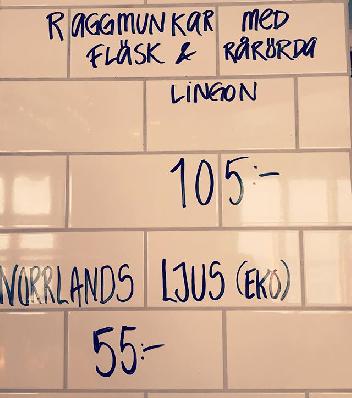 RAGGMUNKAR MED
FLÄSK & RÅRÖRDA
LINGON
105:-
NORRLANDS LJUS (EKO)
55:-